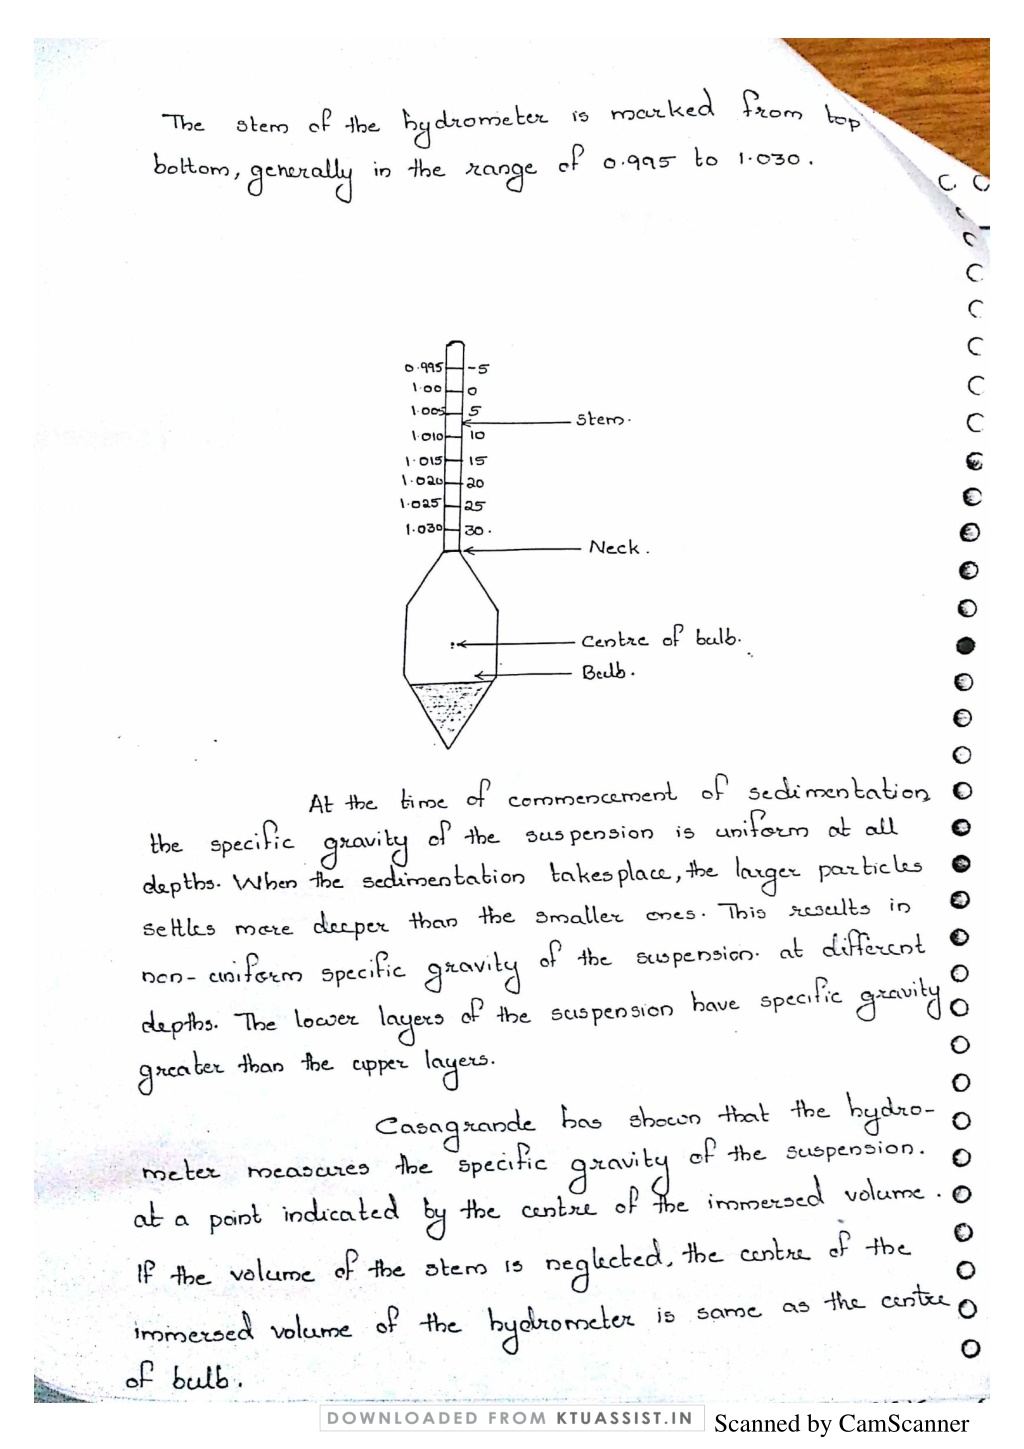 The stem of the hydrometer is marked from top
bottom, generally in the range of 0.995 to 1.030.
0.995 -5
1.00 0
1.005 5
stem.
1.010 10
1.015 15
1.020 20
1.025 25
1.030 30.
Neck.
Centre of bulb.
Bulb.
At the time of commencement of sedimentation
the specific gravity of the suspension is uniform at all
depths. When the sedimentation takesplace, the larger particles
settles more deeper than the smaller ones. This results in
non-uniform specific gravity of the suspension. at different
depths. The lower layers of the suspension have specific gravity
greater than the upper layers.
Casagrande has shown that the hydro-
meter measures the specific gravity of the suspension.
at a point indicated by the centre of the immersed volume.
If the volume of the stem is neglected, the centre of the
immersed volume of the hydrometer is same as the centre
of bulb.
DOWNLOADED FROM KTUASSIST.IN
Scanned by CamScanner